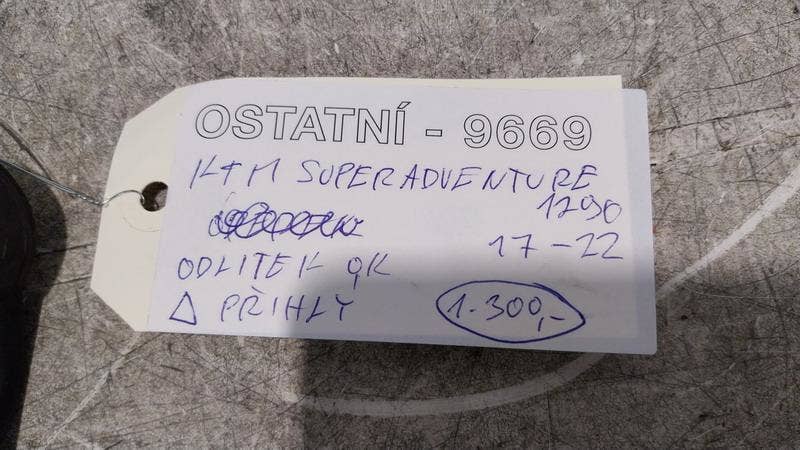 OSTATNÍ - 9669
KTM SUPERADVENTURE
1290
17-22
ODLITEK OK
Δ PŘIHLY 1.300,-